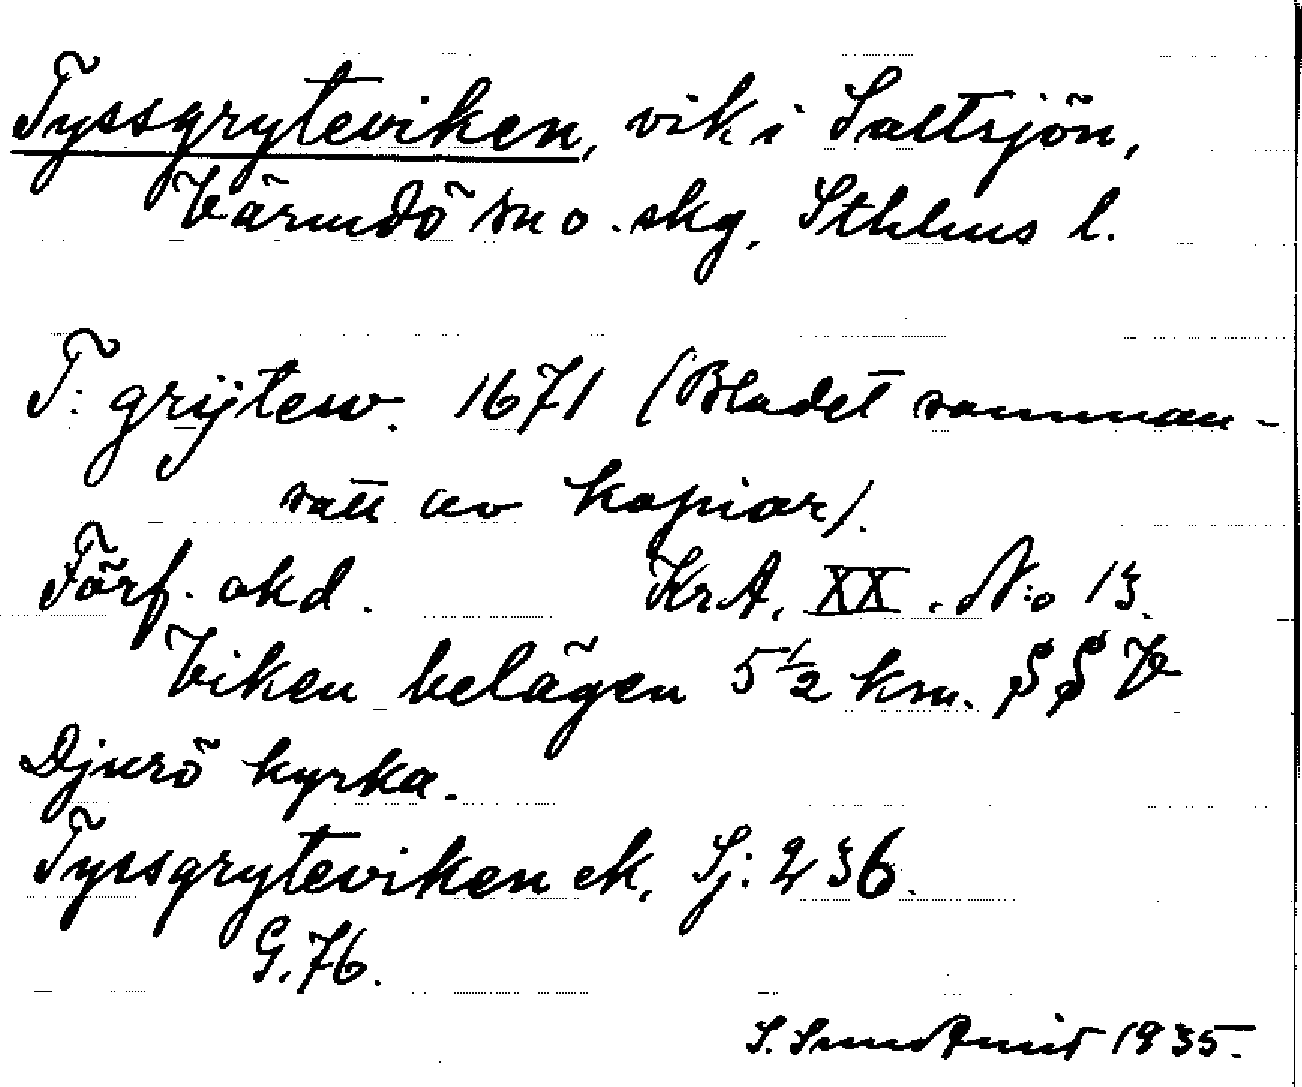 Tyssgryteviken, vik i Saltsjön,
Värmdö sn o. skg, Sthlms l.
T: grijtew. 1671 (Bladet samman-
satt av kopior).
Förf. okd. Kr.A. XX. N:o 13.
Viken belägen 5 1/2 km. S S V
Djurö kyrka.
Tyssgryteviken ek. Sj: 236.
G. 76.
S. 1935.